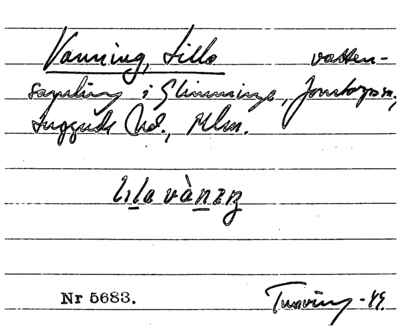 Vanning, Lilla vatten-
samling i Glimminge, Jonstorps sn,
Luggude hd., Mlm.
lịla vànɪŋ
Nr 5683.
Tunving -49.